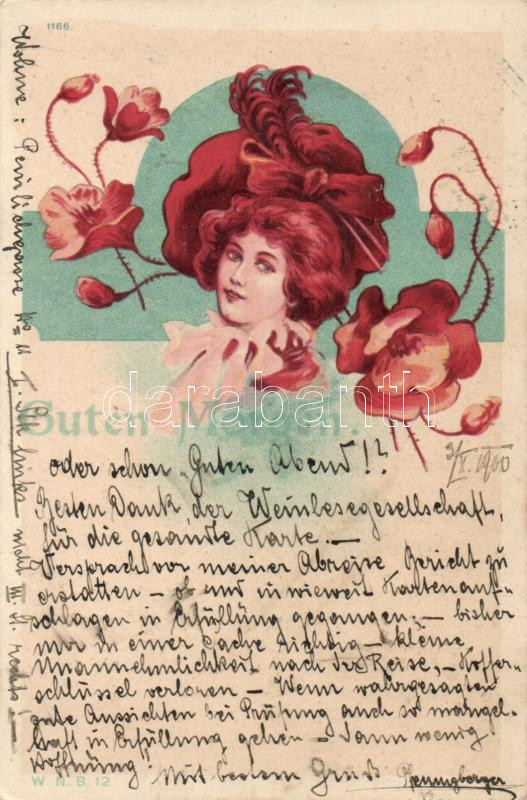 1166.
Guten Morgen.
oder schon „Guten Abend"!?
3/X. 1900
Besten Dank der Weinlesegesellschaft,
für die gesandte Karte. —
Versprach vor meiner Abreise Bericht zu
erstatten — ob und in wieweit Kartenauf-
schlagen in Erfüllung gegangen; — bisher
nur in einer Sache richtig — kleine
Unannehmlichkeit nach der Reise, — Koffer-
schlüssel verloren — Wenn wahrgesagten
gute Aussichten bei Prüfung auch so mangel-
haft in Erfüllung gehen — dann wenig
Hoffnung
Mit bestem Gruß
W. N. B. 12
Wohne:
No 11
I. links nicht
rechts!
darabanth